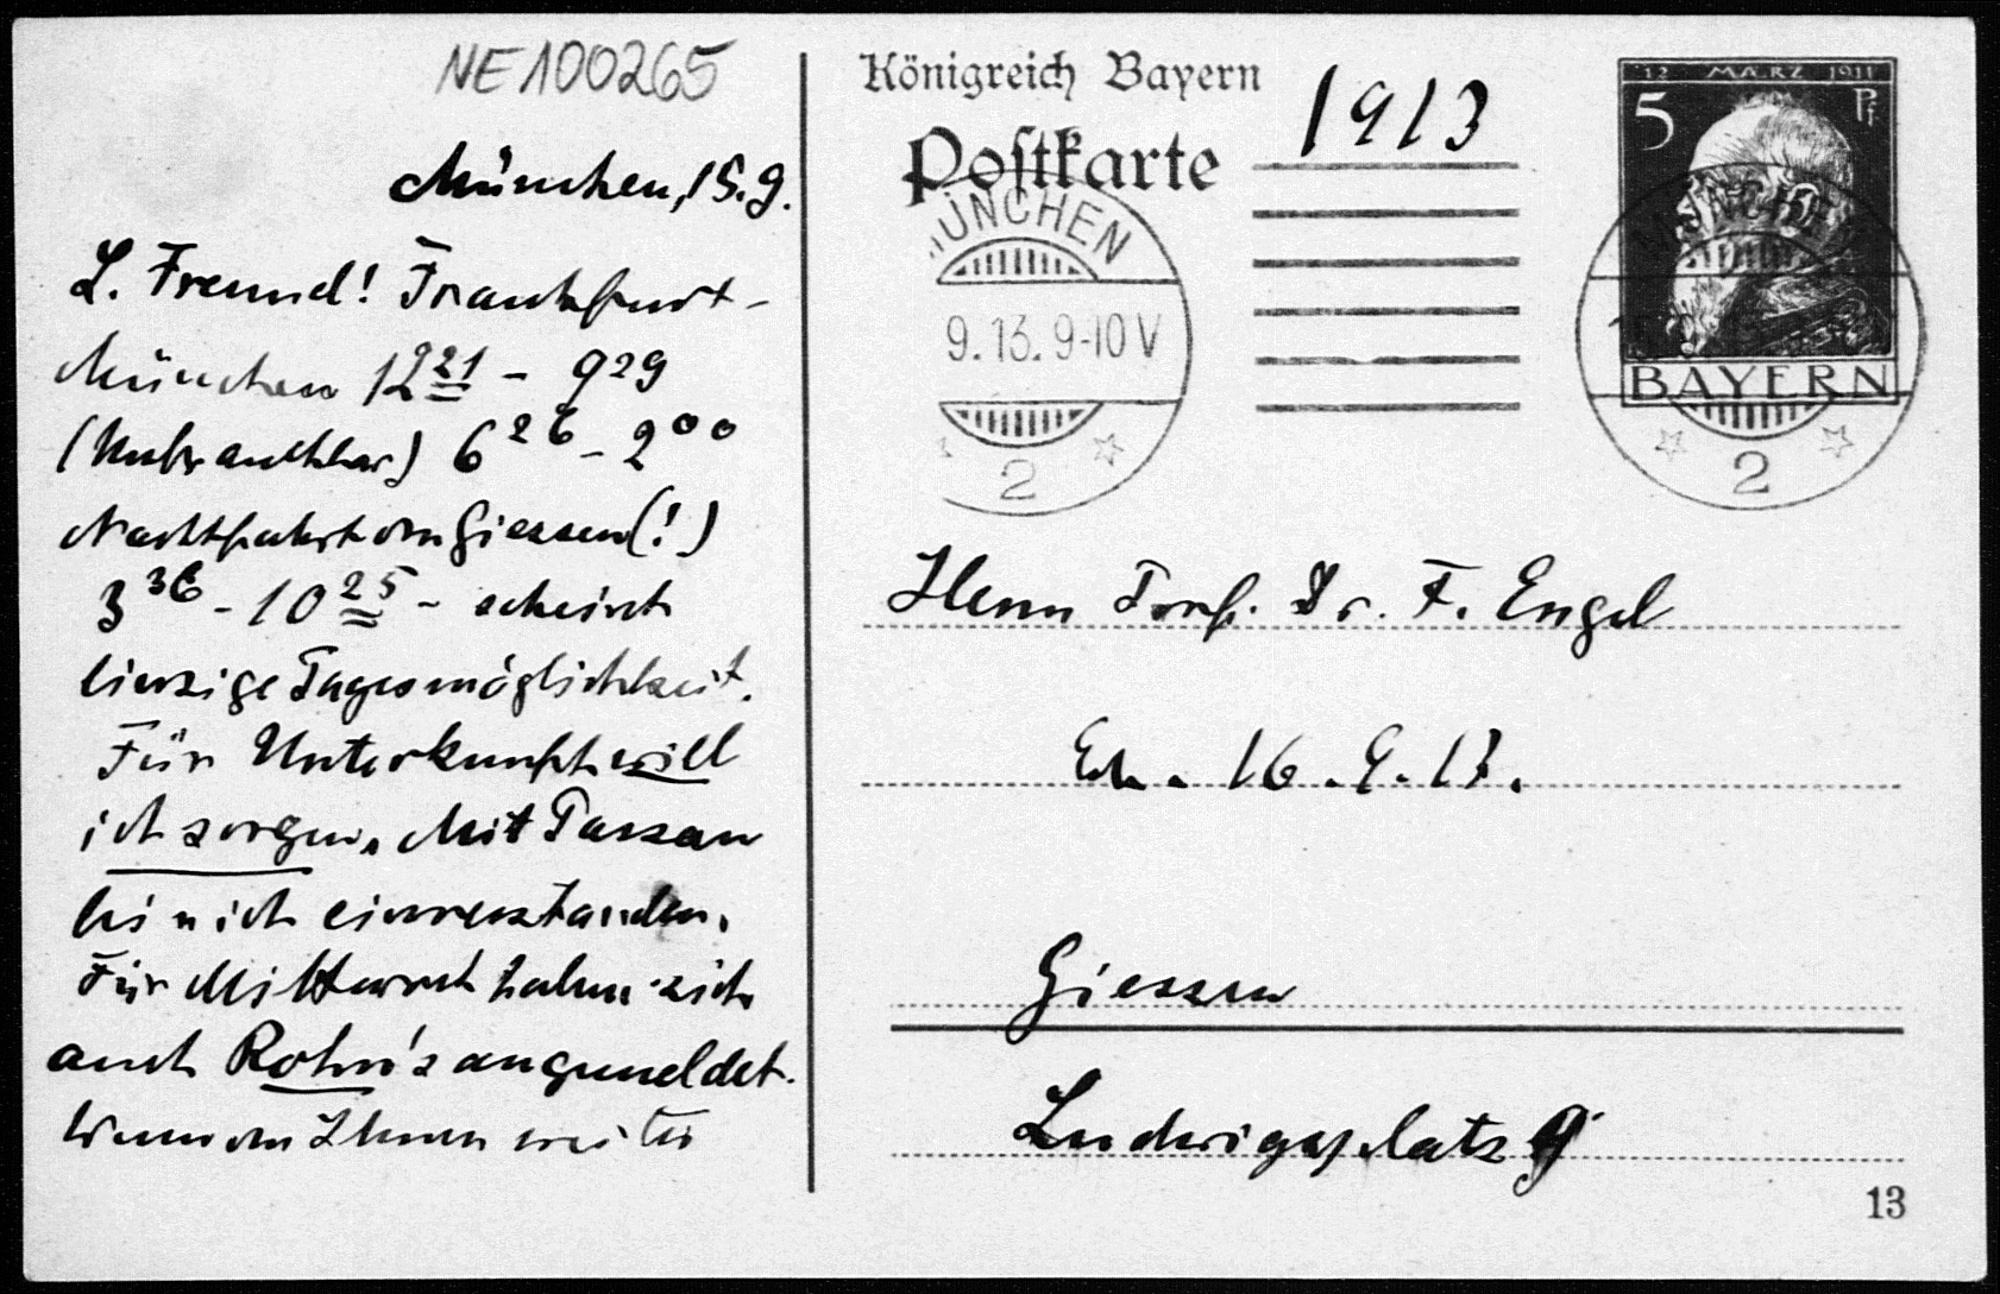 NE100265
München, 15.9.
L. Freund! Frankfurt-
München 12 21 - 9 29
(Unbrauchbar) 6 26 - 2 00
Nachtfahrt von Giessen(!)
3 36 - 10 25 - scheint
einzige Tagesmöglichkeit.
Für Unterkunft will
ich sorgen. Mit Tarzan
bin ich einverstanden.
Für Mittwoch haben sich
auch Rohn's angemeldet.
Wenn von Ihnen weiter
Königreich Bayern
1913
Postkarte
MÜNCHEN
9.13. 9-10 V
2
12 MÄRZ 1911
5 Pf
BAYERN
MÜNCHEN
2
Herrn Prof. Dr. F. Engel
Eh. 16.9.13.
Giessen
Ludwigsplatz 9
13